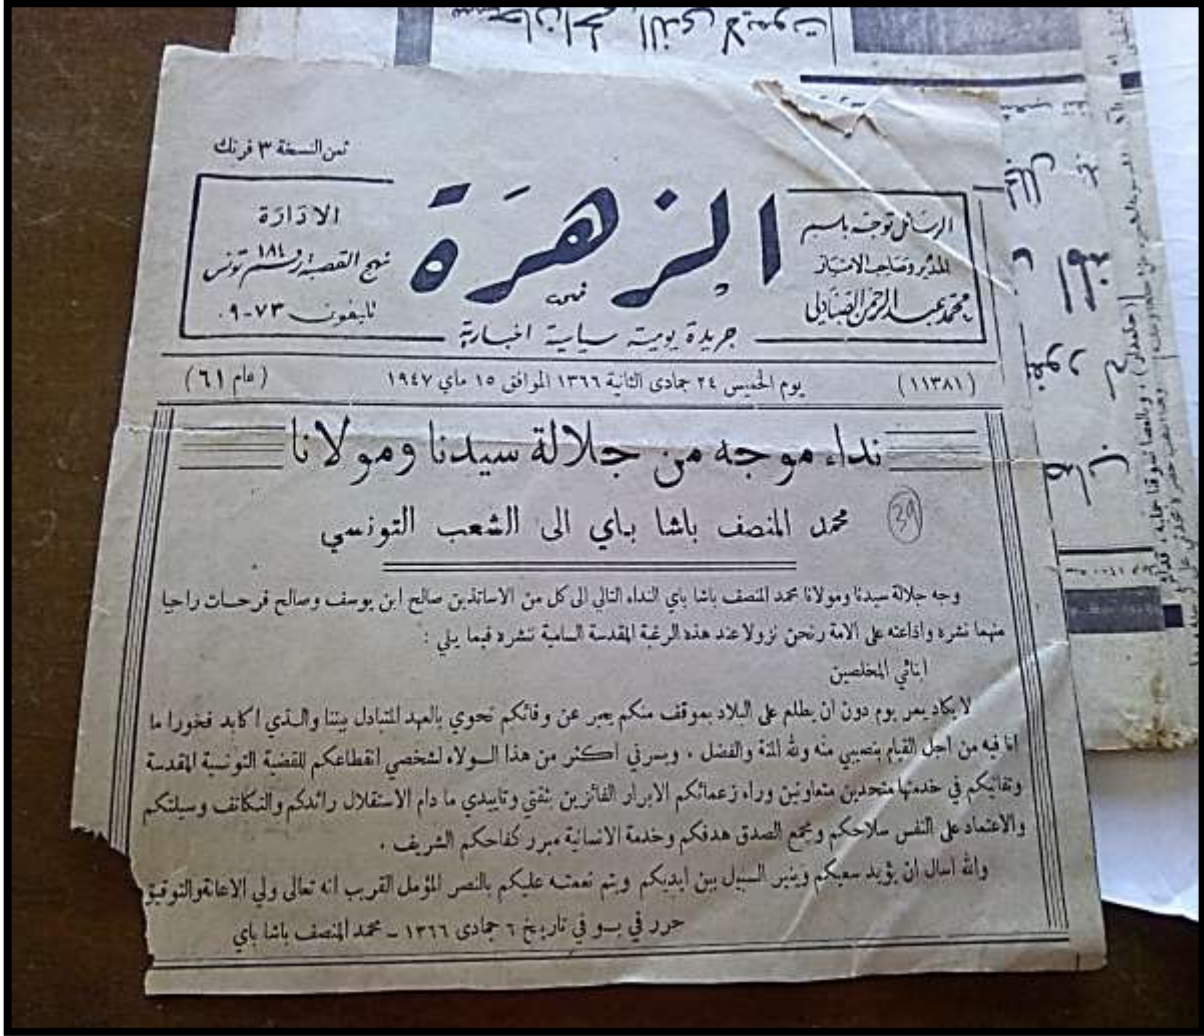 سبحان الحي الذي لا يموت
ثمن النسخة ٣ فرنك
الرسائل توجه باسم
المدير وصاحب الامتياز
محمد عبد الرحمن الصنادلي
الزهرة
تونس
جريدة يومية سياسية اخبارية
الادارة
نهج القصبة رقم ١٨٤ تونس
تليفون ٧٣-٠٩
(١١٣٨١)
يوم الخميس ٢٤ جمادى الثانية ١٣٦٦ الموافق ١٥ ماي ١٩٤٧
(عام ٦١)
نداء موجه من جلالة سيدنا ومولانا
محمد المنصف باشا باي الى الشعب التونسي
39
وجه جلالة سيدنا ومولانا محمد المنصف باشا باي النداء التالي الى كل من الاستاذين صالح ابن يوسف وصالح فرحات راجيا
منهما نشره واذاعته على الامة ونحن نزولا عند هذه الرغبة المقدسة السامية ننشره فيما يلي :
ابنائي المخلصين
لا يكاد يمر يوم دون ان يطلع على البلاد بموقف منكم يعبر عن وفائكم نحوي بالعهد المتبادل بيننا والذي اكابد فخورا ما
انا فيه من اجل القيام بنصيبي منه ولله المنة والفضل . ويسرني اكثر من هذا الولاء لشخصي انقطاعكم للقضية التونسية المقدسة
وتفانيكم في خدمتها متحدين متعاونين وراء زعمائكم الابرار الفائزين بثقتي وتاييدي ما دام الاستقلال رائدكم والتكاتف وسيلتكم
والاعتماد على النفس سلاحكم ومجمع الصدق هدفكم وخدمة الانسانية مبرر كفاحكم الشريف .
والله اسال ان يؤيد سعيكم وينير السبيل بين ايديكم ويتم نعمته عليكم بالنصر المؤمل القريب انه تعالى ولي الاعانة والتوفيق
حرر في بـو في تاريخ ٦ جمادى ١٣٦٦ - محمد المنصف باشا باي